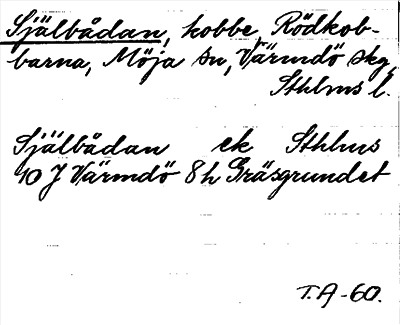 Själbådan, kobbe, Rödkob-
barna, Möja sn, Värmdö skg,
Sthlms l.
Själbådan ek Sthlms
10 J Värmdö 8h Gräsgrundet
T.A-60.